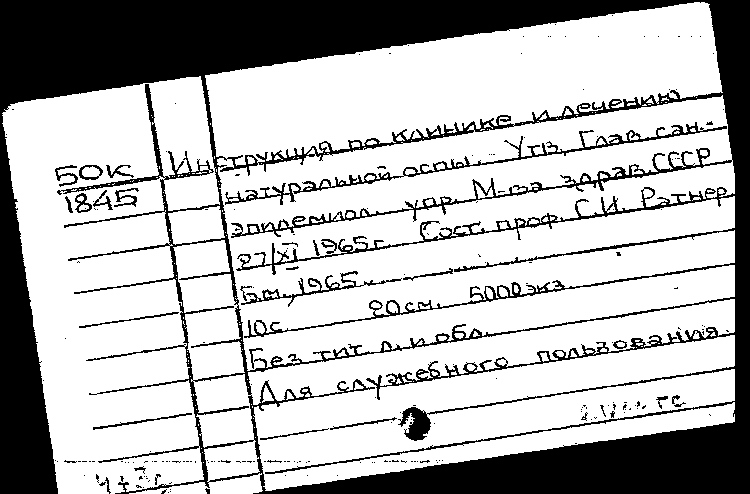 50к
1845
Инструкция по клинике и лечению
натуральной оспы. Утв. Глав. сан.-
эпидемиол. упр. М-ва здрав. СССР
27/XI 1965г. Сост. проф. С.И. Ратнер
Б.м., 1965.
10с 20см. 5000экз.
Без тит. л. и обл.
Для служебного пользования.